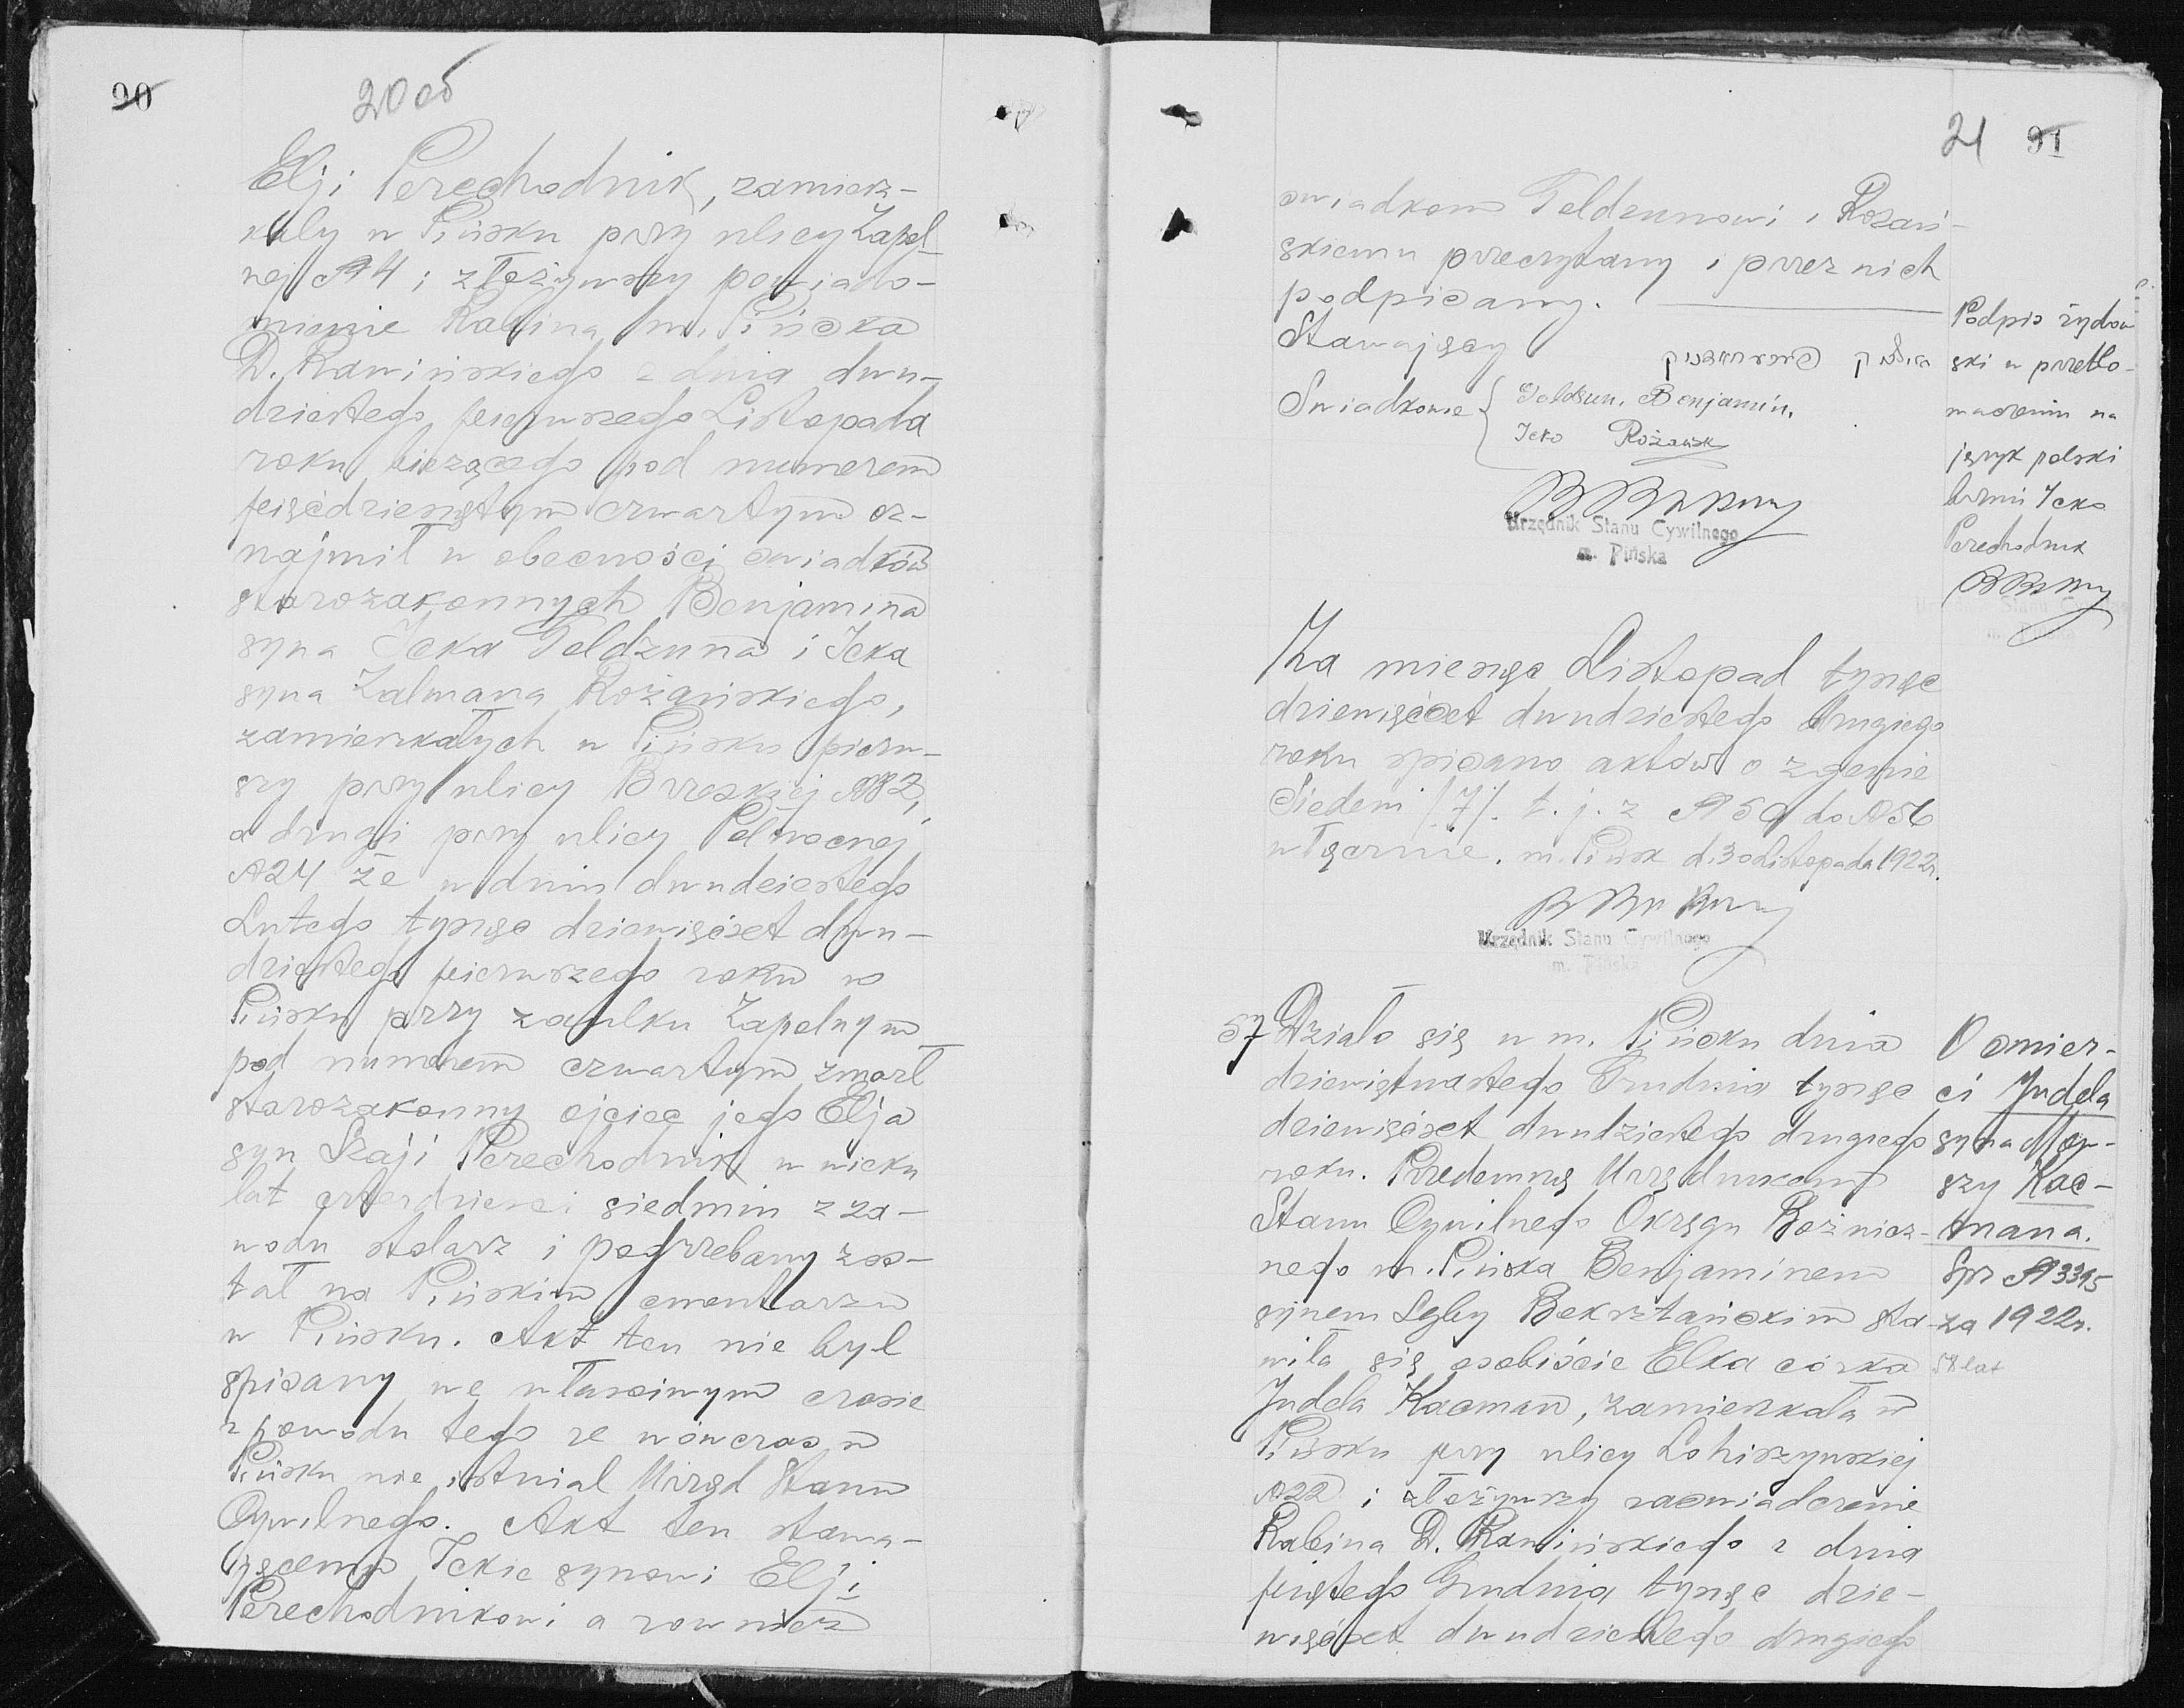 90
20 об
Elji Perechodnik, zamiesz-
kały w Pińsku przy ulicy Zapel
nej №4 i złożywszy powiado-
mienie Rabina m. Pińska
D. Rawińskiego z dnia dwu-
dziestego pierwszego Listopada
roku bieżącego pod numerem
pięćdziesiątym czwartym oz-
najmił w obecności swiadków
starozakonnych Benjamina
syna Icka Teldzuna i Icka
syna Zalmana Rożańskiego,
zamieszkałych w Pińsku pierw-
szy przy ulicy Brzeskiej №82,
a drugi przy ulicy Połnocnej
№24 że w dniu dwudziestego
Lutego tysiąc dziewięćset dwu-
dziestego pierwszego roku w
Pińsku przy zaułku Zapelnym
pod numerem czwartym zmarł
starozakonny ojciec jego Elja
syn Szaji Perechodnik w wieku
lat czterdziesci siedmiu z za-
wodu stolarz i pogrzebany zos-
tał na Pińskim cmentarzu
w Pińsku. Akt ten nie był
spisany we własciwym czasie
z powodu tego ze wówczas w
Pińsku nie istniał Urząd Stanu
Cywilnego. Akt ten stawa-
jącemu Ickie synowi Elji
Perechodnikowi a rownież
21 91
swiadkom Teldzunowi i Rożań-
skiemu przeczytany i przez nich
podpisany.
Stawający
Swiadkowie { Goldzun, Benjamin,
Icko Rożański
Urzędnik Stanu Cywilnego
m. Pińska
Podpis żydow
ski w przetło-
maczeniu na
język polski
brzmi Icko
Perechodnik
Za miesiąc Listopad tysiąc
dziewięćset dwudziestego drugiego
roku spisano aktów o zgonie
Siedem /7/. t. j. z № 50 do №56
włącznie. m. Pińsk d. 30 Listopada 1922r.
Urzędnik Stanu Cywilnego
m. Pińska
57 Działo się w m. Pińsku dnia
dziewiętnastego Grudnia tysiąc
dziewięćset dwudziestego drugiego
roku. Przedemną Urzędnikiem
Stanu Cywilnego Okręgu Bożnicz-
nego m. Pińska Benjaminem
synem Lejby Bokrsztańskim sta-
wiła się osobiście Elka córka
Judela Kacman, zamieszkała w
Pińsku przy ulicy Lohiszynskiej
№22 i złożywszy zaswiadczenie
Rabina D. Rawińskiego z dnia
piątego Grudnia tysiąc dzie-
więćset dwudziestego drugiego
O smier-
ci Judela
syna Mow-
szy Kac-
mana.
Spr № 3395
za 1922r.
58 lat